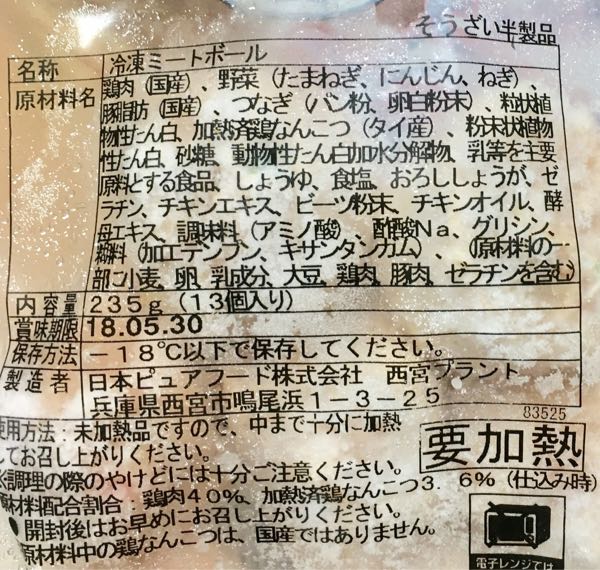 そうざい半製品
名称 冷凍ミートボール
原材料名 鶏肉(国産)、野菜(たまねぎ、にんじん、ねぎ)、
豚脂肪(国産)、つなぎ(パン粉、卵白粉末)、粒状植
物性たん白、加熱済鶏なんこつ(タイ産)、粉末状植物
性たん白、砂糖、動物性たん白加水分解物、乳等を主要
原料とする食品、しょうゆ、食塩、おろししょうが、ゼ
ラチン、チキンエキス、ビーツ粉末、チキンオイル、酵
母エキス、調味料(アミノ酸)、酢酸Na、グリシン、
糊料(加工デンプン、キサンタンガム)、(原材料の一
部に小麦、卵、乳成分、大豆、鶏肉、豚肉、ゼラチンを含む)
内容量 235g(13個入り)
賞味期限 18.05.30
保存方法 -18℃以下で保存してください。
製造者 日本ピュアフード株式会社 西宮プラント
兵庫県西宮市鳴尾浜1-3-25
83525
使用方法:未加熱品ですので、中まで十分に加熱
してお召し上がりください。
要加熱
調理の際のやけどには十分ご注意ください。
原材料配合割合:鶏肉40%、加熱済鶏なんこつ3.6%(仕込み時)
●開封後はお早めにお召し上がりください。
原材料中の鶏なんこつは、国産ではありません。
電子レンジでは